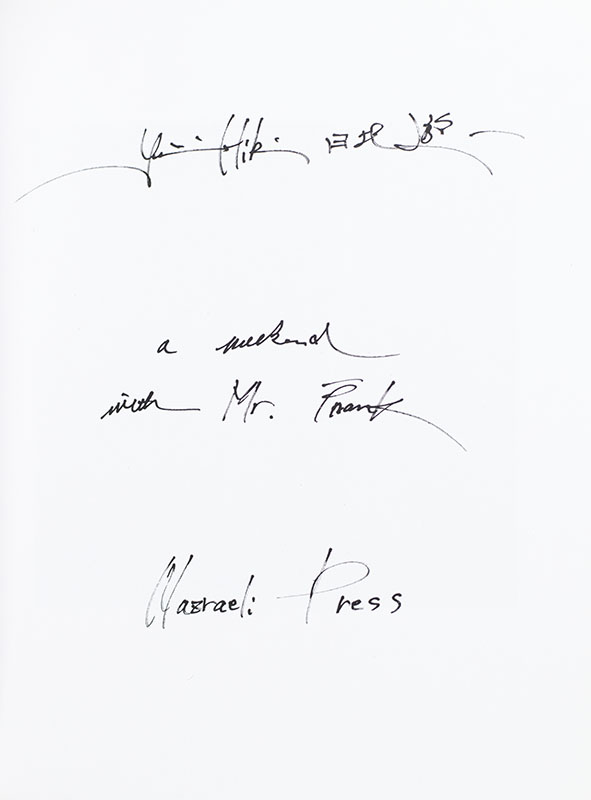 Yuichi Hibi 日比 遊一
a weekend
with Mr. Frank
Nazraeli Press